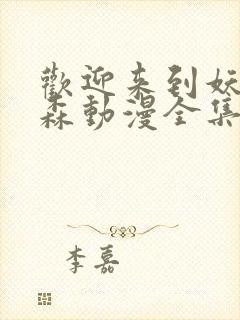 歡迎来到妖
森動漫全集
李嘉